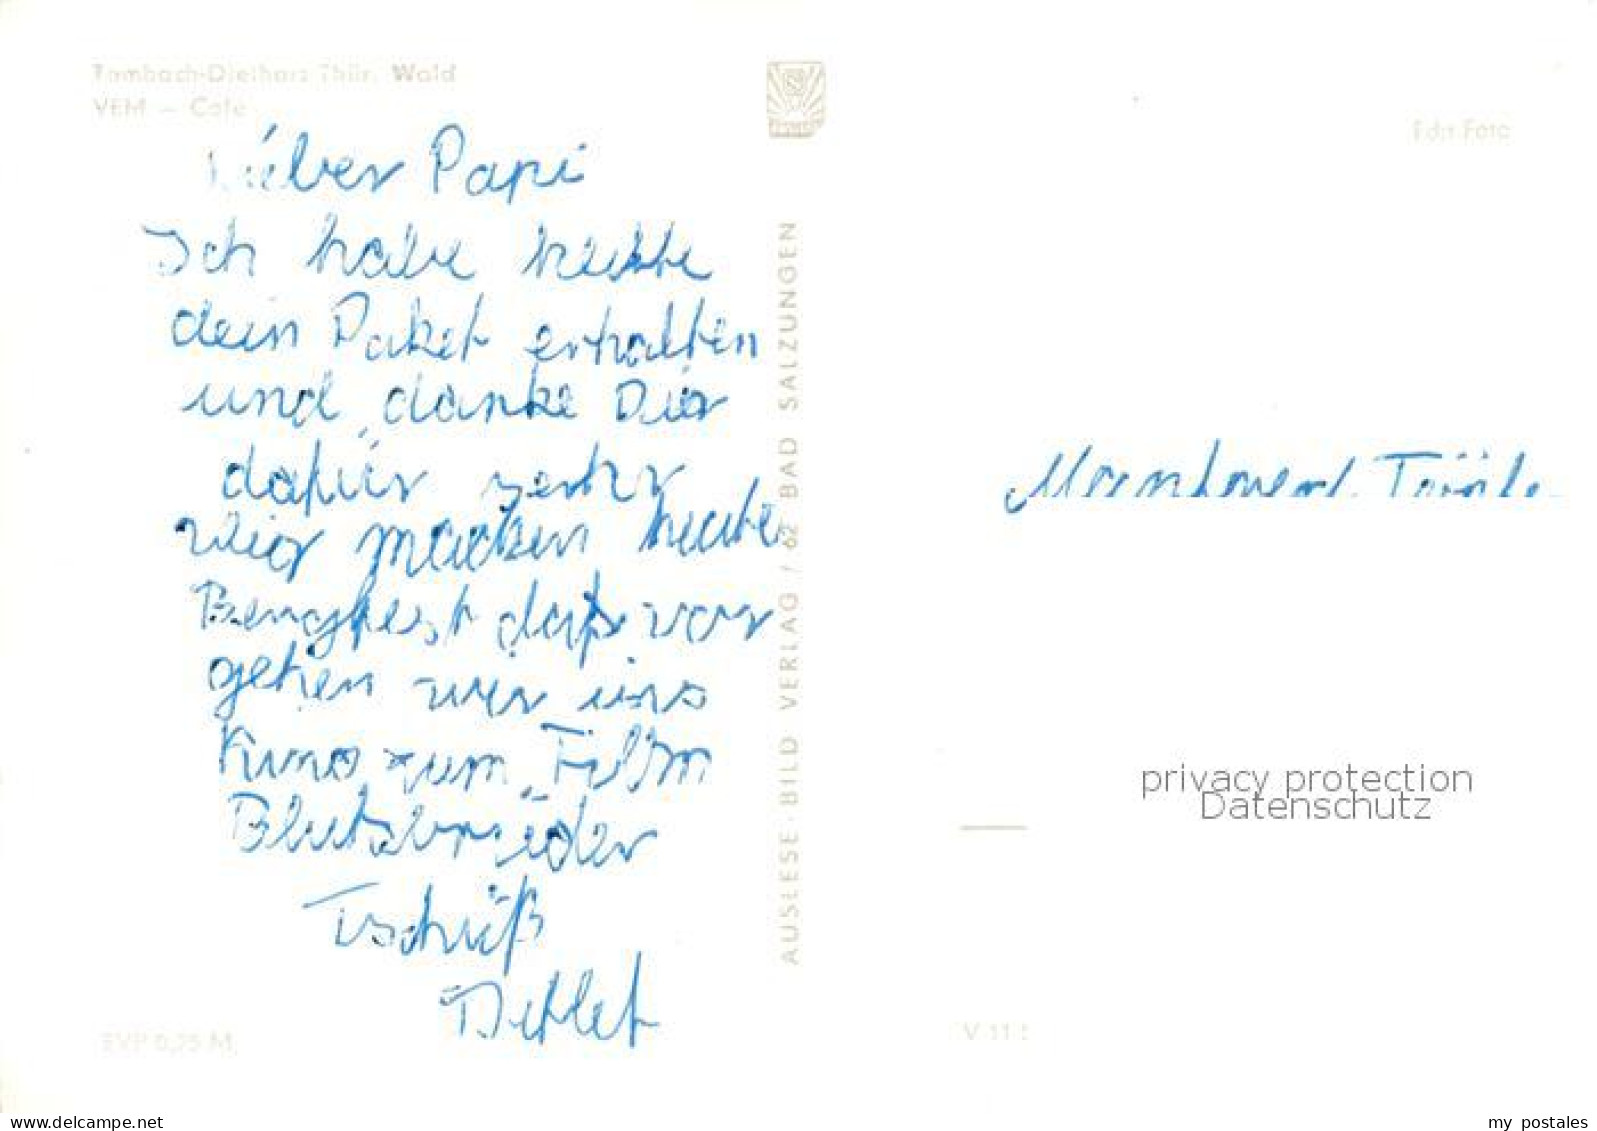 Tambach-Dietharz Thür. Wald
VEM – Café
Lieber Papi
Ich habe heute
dein Paket erhalten
und danke Dir
dafür sehr
wir machen heute
Bergfest davor
gehen wir ins
Kino zum Film
"Blutsbrüder
Tschüß
Detlef
EVP 0,25 M
AUSLESE-BILD VERLAG / 62 BAD SALZUNGEN
Foto
V 11 1
privacy protection
Datenschutz
www.delcampe.net
my_postales